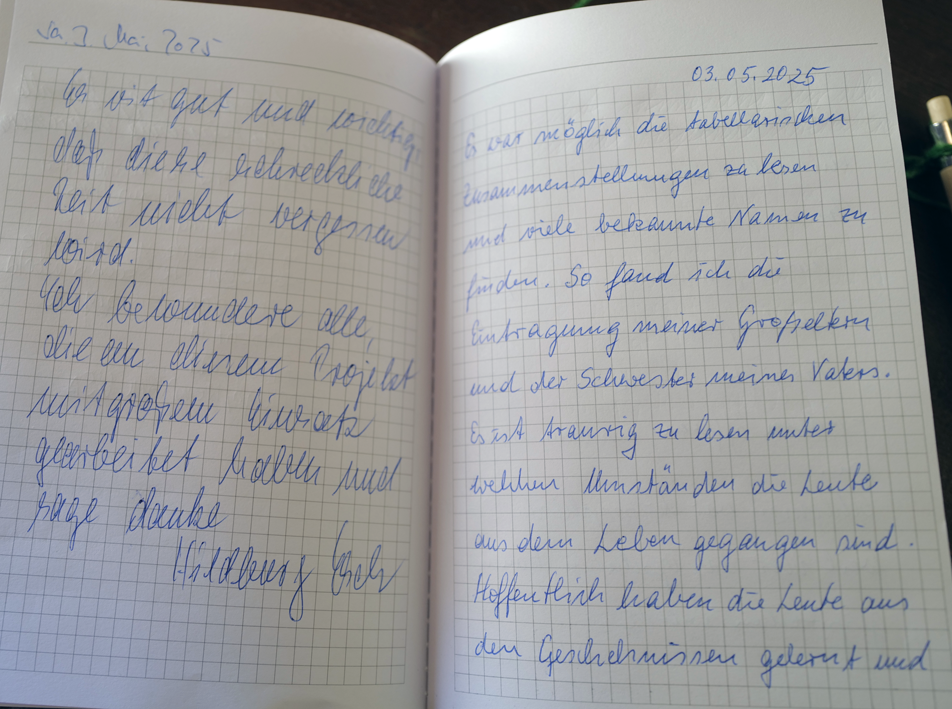 Sa. 3. Mai, 2025
Es ist gut und wichtig,
daß diese schreckliche
Zeit nicht vergessen
wird.
Ich bewundere alle,
die an diesem Projekt
mit großem Einsatz
gearbeitet haben und
sage danke
Hildburg
03.05.2025
Es war möglich die tabellarischen
Zusammenstellungen zu lesen
und viele bekannte Namen zu
finden. So fand ich die
Eintragung meiner Großeltern
und der Schwester meines Vaters.
Es ist traurig zu lesen unter
welchen Umständen die Leute
aus dem Leben gegangen sind.
Hoffentlich haben die Leute aus
den Geschehnissen gelernt und